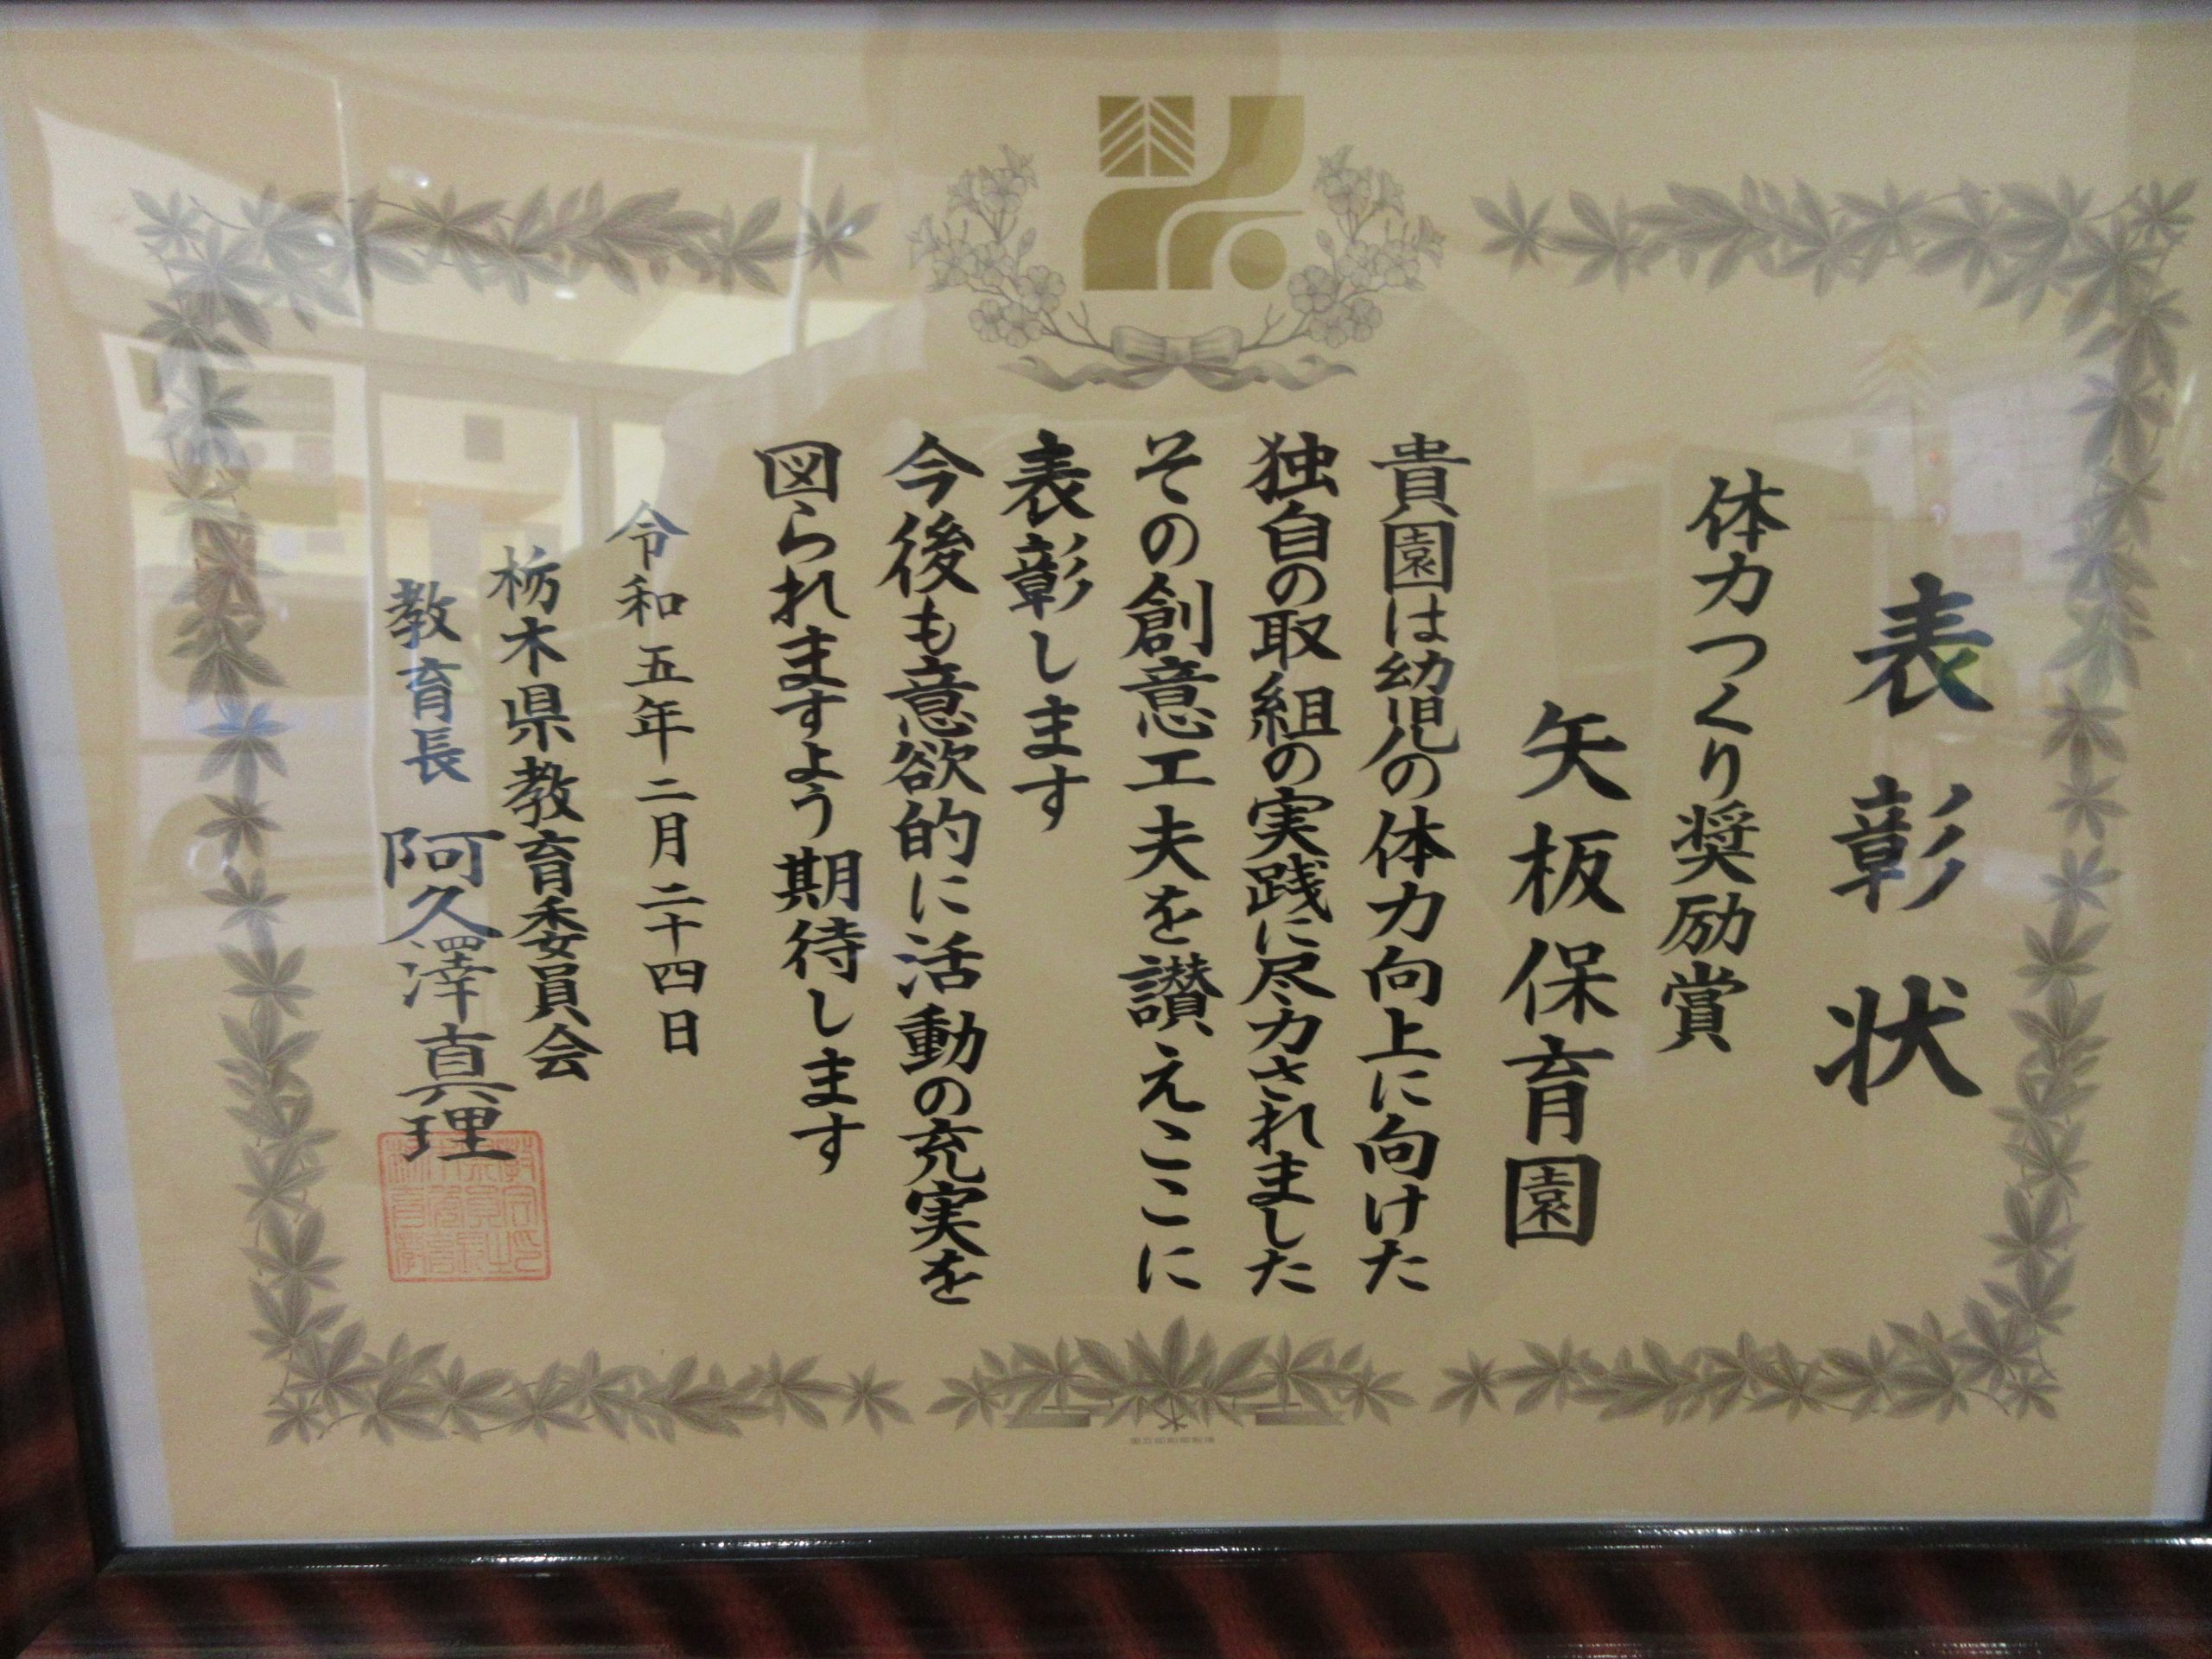 表彰状
体力つくり奨励賞
矢板保育園
貴園は幼児の体力向上に向けた
独自の取組の実践に尽力されました
その創意工夫を讃えここに
表彰します
今後も意欲的に活動の充実を
図られますよう期待します
令和五年二月二十四日
栃木県教育委員会
教育長 阿久澤真理